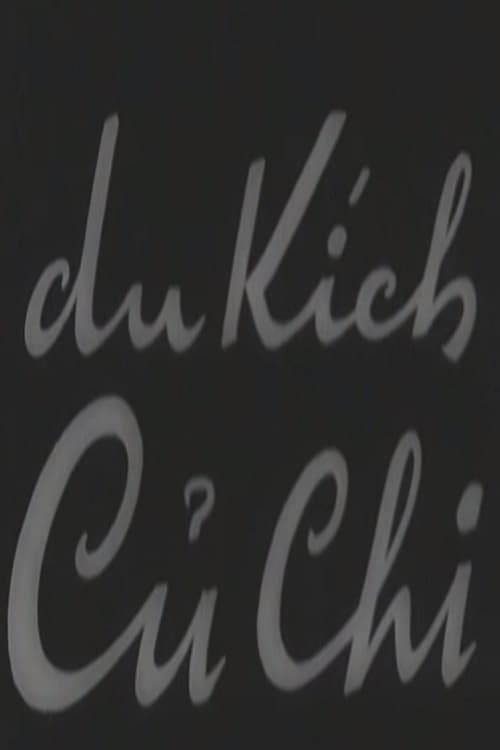 du Kích
Củ Chi